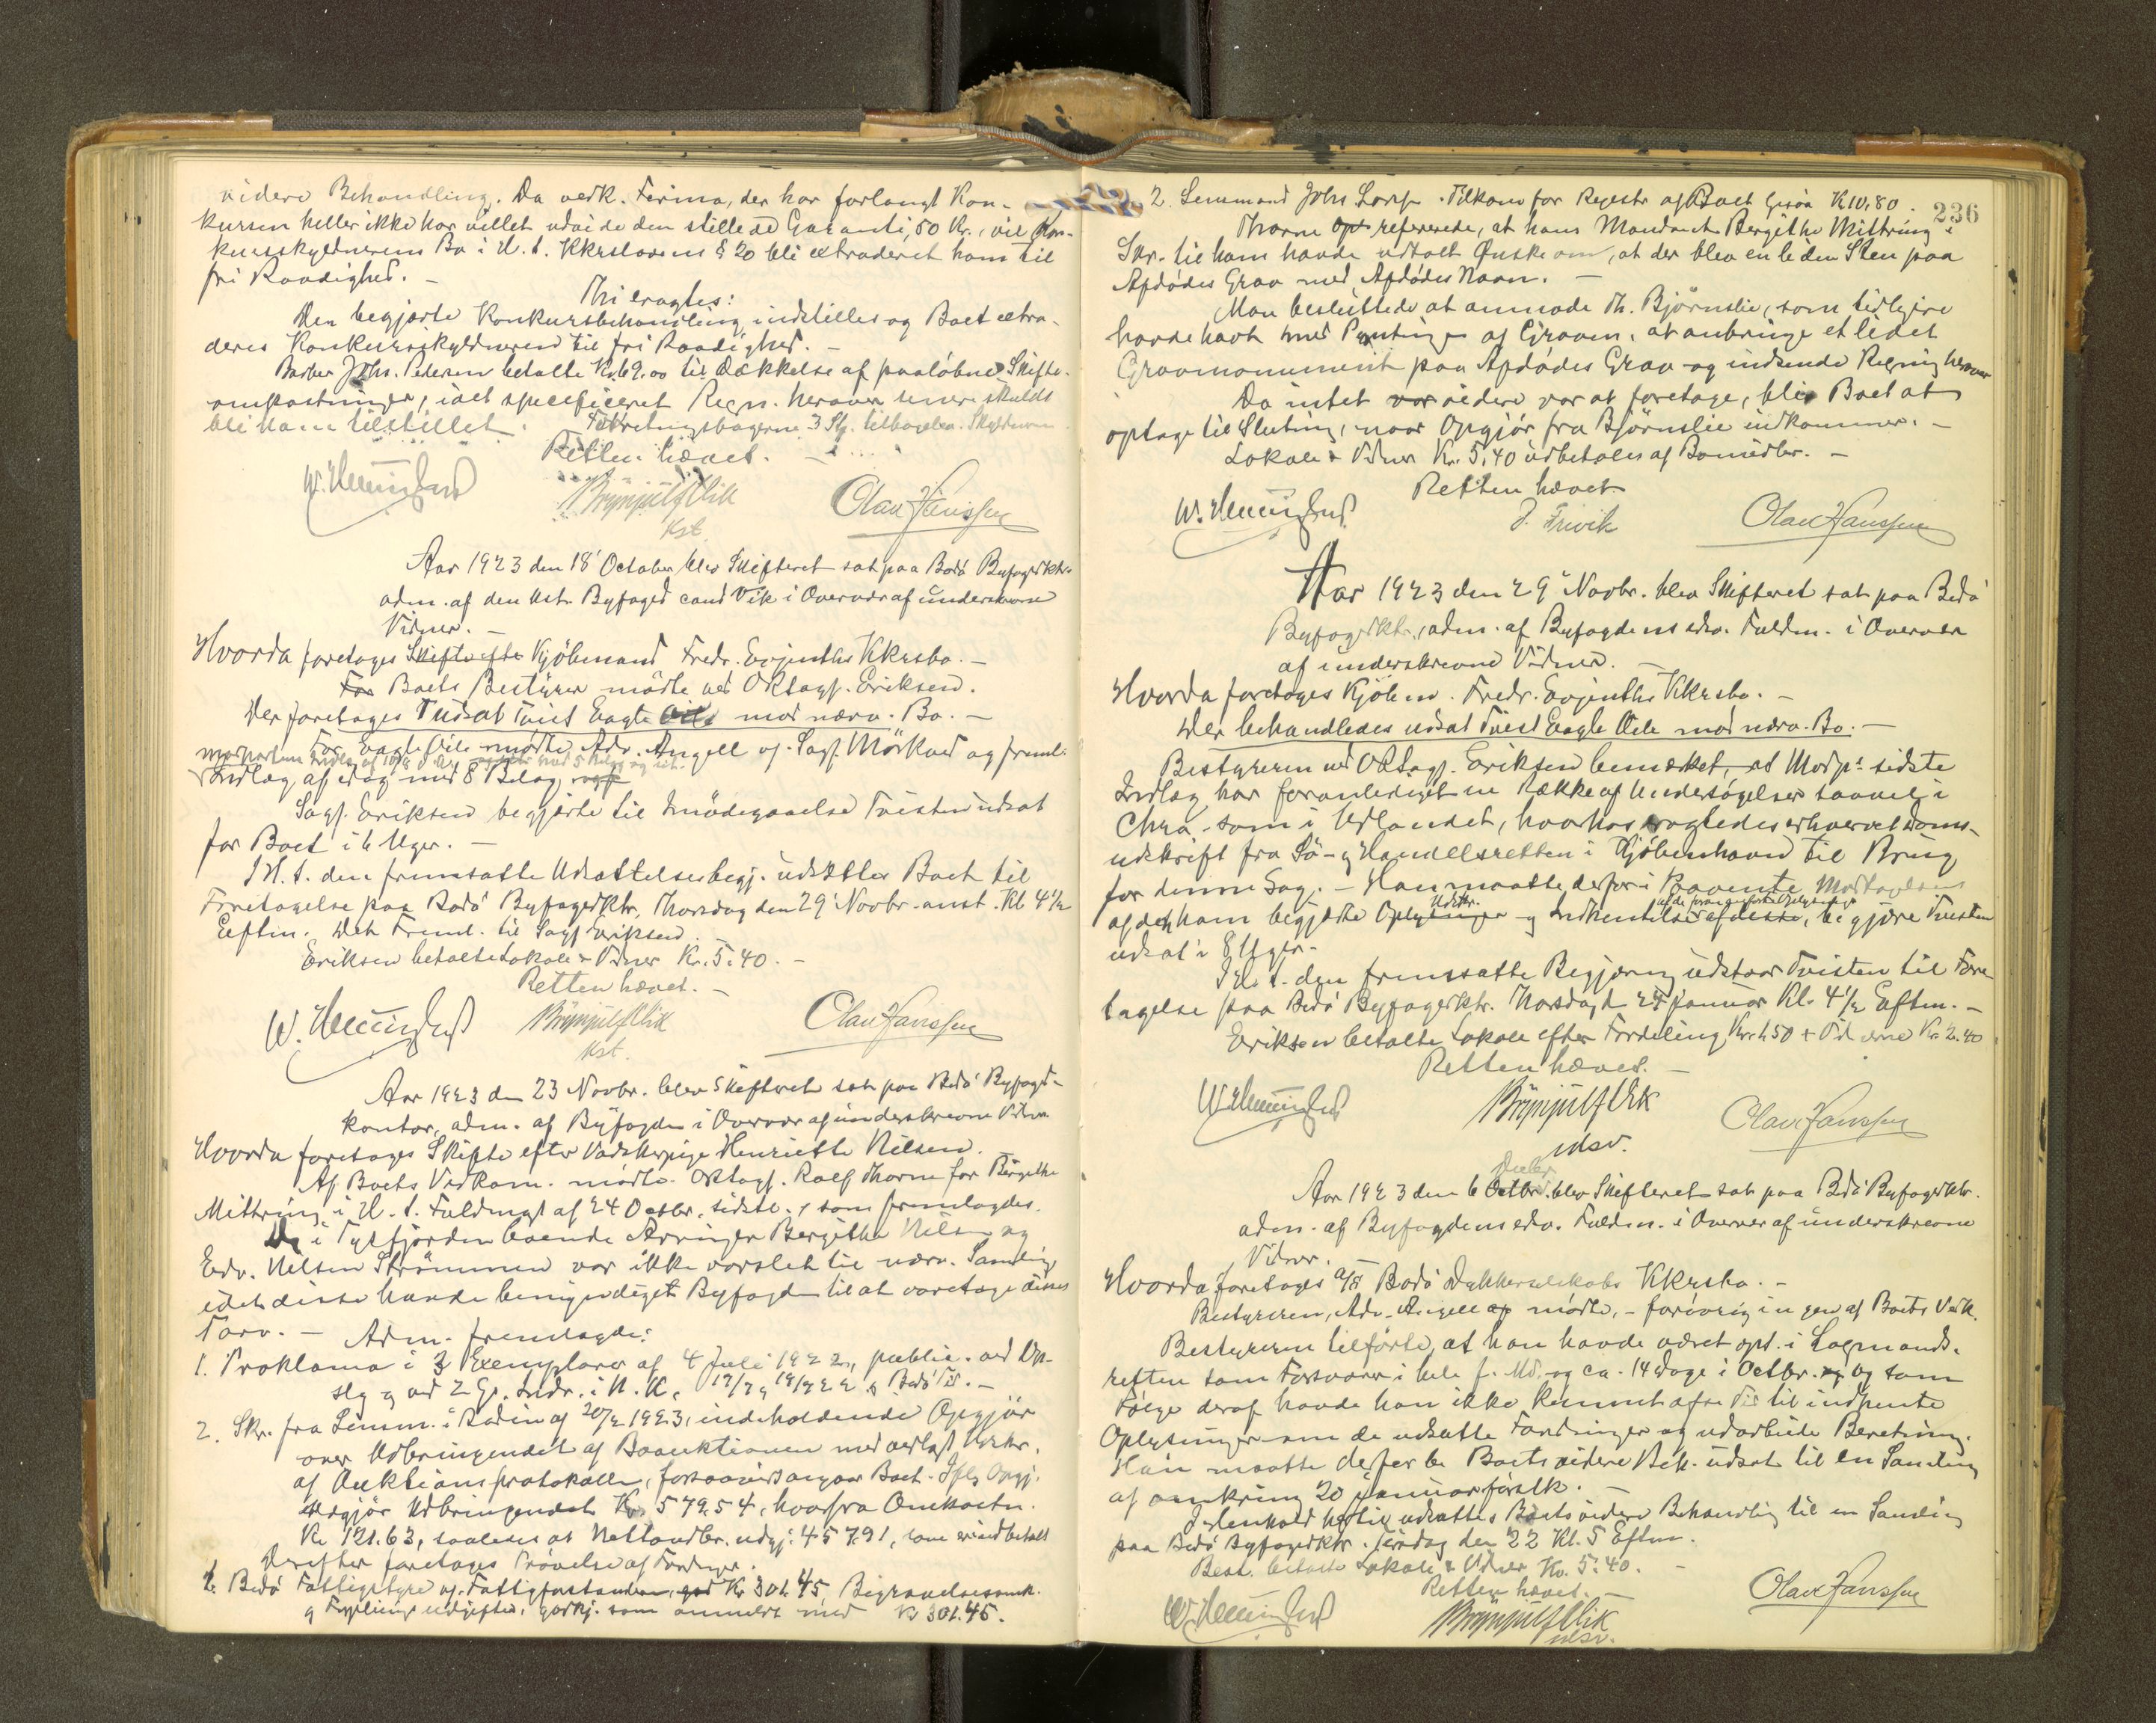 videre Behandling. Da vedk. Firma, der har forlangt Kon-
kursen heller ikke har villet udvide den stillede Garanti, 50 Kr., vil Kon-
kursskyldnerens Bo i H. t. Kkrslovens § 20 bli extraderet ham til
fri Raadighed. –
Thi eragtes:
Den begjærte Konkursbehandling indstilles og Boet extra-
deres Konkursskyldneren til fri Raadighed. –
Barber Johs. Pedersen betalte Kr. 69.00 til Dækkelse af paaløbne Skifte-
omkostninger, idet specificeret Regn. herover senere skulde
bli ham tilstillet. Forretningsbøgerne 3 Stk. tilbagelev. Skyldneren
Retten hævet. –
Brynjulf Vik
Kst.
Olav Hanssen
Aar 1923 den 18' October blev Skifteret sat paa Bodø Byfogedktr.
adm. af den kst. Byfoged cand Vik i Overvær af underskrevne
Vidner. –
Hvorda foretages Skifte efter Kjøbmand Fredr. Evjenths Kkrsbo. –
For Boets Bestyrer mødte ved ORsagf. Eriksen.
Der foretages Tvist Eagle Oils mod nærv. Bo. –
For Eagle Oils mødte Adv. Angell og Sagf. Mørkved og freml.
Indlæg af idag med 8 Bilag
Sagf. Eriksen begjærte til Imødegaaelse Tvisten udsat
for Boet i 6 Uger. –
I H. t. den fremsatte Udsættelsesbegj. udsættes Boet til
Foretagelse paa Bodø Byfogedktr, Thorsdag den 29' Novbr. anst. Kl 4½
Eeftm. Det Freml. til Sagf Eriksen.
Eriksen betalte Lokale & Vidner Kr. 5.40. –
Retten hævet. –
Brynjulf Vik
Kst.
Olav Hanssen
Aar 1923 den 23 Novbr. blev Skifteret sat paa Bodø Byfoged-
kontor, adm. af Byfogden i Overvær af underskrevne Vidner
Hvorda foretages Skifte efter Vadskerpige Henriette Nilsen.
Af Boets Vedkom. mødte ORsagf. Rolf Thorne for Bergithe
Mittring i H. t. Fuldmagt af 24 Octbr. sidstl., som fremlagdes.
De i Tysfjorden boende Arvinger Bergitha Nilsen og
Edv. Nilsen Strømmen var ikke varslet til nærv. Samling
idet disse havde bemyndiget Byfogden til at varetage deres
Tarv. – Adm. fremlagde:
1. Proklama i 3 Exemplarer af 4 Juli 1922, public. ved Op-
slg og ved 2 Gg. Indr. i N. K.
2. Skr. fra Lensm. i Bodin af 20/2 1923, indeholdende Opgjør
over Udbringendet af Boauktionen med vedlagt Udskr.
af Auktionsprotokollen, forsaavidt angaar Boet. Iflg. Opgj.
udgjør Udbringendet Kr. 579.54, hvorfra Omkostn.
Kr 121.63, saaledes at Nettoudbr. udgj. 457.91, som er indbetalt
Derefter foretages Prøvelse af Fordrgr.
1. Bodø Fattigstyre og Fattigforstander, Kr 301.45, Begravelsesomk.
og Forpleiningsudgifter, godkj. som anmeldt med Kr 301.45.
236
2. Lensmand Johs Lorss. Tilkom for Registr. af Boet Kr. 10.80.
Thorne refererede, at hans Mandant Bergithe Mittring i
Skr. til ham havde udtalt Ønske om, at der blev en liden Sten paa
Afdødes Grav med Afdødes Navn. –
Man besluttede at anmode Th. Bjørnslie, som tidligere
havde havt med Pyntingen af Graven, at anbringe et lidet
Gravmonument paa Afdødes Grav og indsende Regning herover
Da intet var videre var at foretage, blir Boet at
optage til Slutning, naar Opgjør fra Bjørnslie indkommer. –
Lokale & Vidner Kr. 5.40 udbetales af Bomidler. –
Retten hævet
Olav Hanssen
Aar 1923 den 29' Novbr. blev Skifteret sat paa Bodø
Byfogedktr., adm. af Byfogdens edsv. Fuldm. i Overvær
af underskrevne Vidner. –
Hvorda foretages Kjøbm. Fredr. Evjenths Kkrsbo. –
Der behandledes udsat Tvist Eagle Oils mod nærv. Bo. –
Bestyreren ved ORsagf. Eriksen bemærket, at Modp's sidste
Indlæg har foranlediget en Række af Undersøgelser saavel i
Chra. som i Udlandet, hvorhos agtedes erhvervet Doms-
udskrift fra Sø- og Handelsretten i Kjøbenhavn til Brug
for denne Sag. – Han maatte derfor i Paavente Modtagelsen
af de af ham begjærte Oplysninger og Indhentelse af disse, begjære Tvisten
udsat i 8 Uger. –
I H. t. den fremsatte Begjæring udstaar Tvisten til Fore-
tagelse paa Bodø Byfogedktr. Thorsdag d 24 januar Kl. 4½ Eftm. –
Eriksen betalte Lokale efter Fordeling Kr. 1.50 + Vidnerne Kr. 2.40
Retten hævet. –
Brynjulf Vik
edsv.
Olav Hanssen
Aar 1923 den 6 Octbr. Decbr blev Skifteret sat paa Bodø Byfogedktr.
adm. af Byfogdens edsv. Fuldm. i Overvær af underskrevne
Vidner.
Hvorda foretages A/S Bodø Dykkerselskabs Kkrsbo. –
Bestyreren, Adv. Angell mødte, – forøvrig ingen af Boets Vedk.
Bestyreren tilførte, at han havde været opt. i Lagmands-
retten som Forsvarer i hele f. Md. og ca. 14 Dage i Octbr. og som
Følge deraf havde han ikke kunnet afse Tid til indhente
Oplysninger om de udsatte Fordringer og udarbeide Beretning.
Han maatte derfor be Boets videre Beh. udsat til en Samling
af omkring 20 januar førstk. –
I Henhold hertil udsættes Boets videre Behandling til en Samling
paa Bodø Byfogedktr. Tirsdag den 22 Kl. 5 Eftm.
Best. betalte Lokale & Vidner Kr. 5.40. –
Retten hævet. –
Brynjulf Vik
edsv.
Olav Hanssen